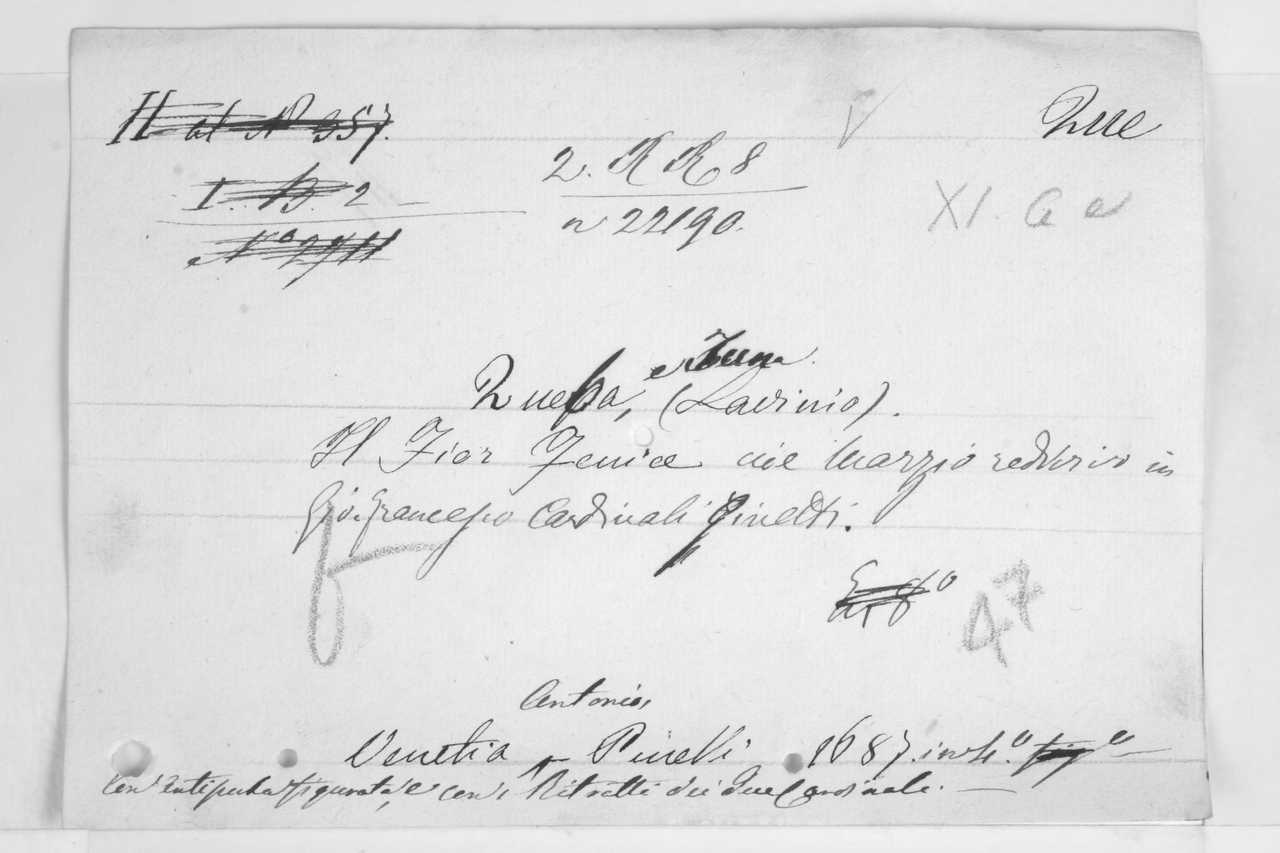 II al N° 357.
Que
I. B. 2
2. R R 8
n 22190.
XI. a e
N° 2911
Quepa, (Lavinio).
Il Fior Fenice cioè Marzio redivivo in
Gio. Francesco Cardinali Ginetti.
47
Antonio,
Venetia Pinelli 1687. in 4.° fig°
con antiporta figurata, e con i Ritratti dei due Cardinale.